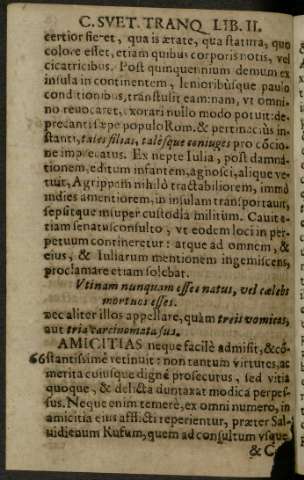 C. SVET. TRANQ. LIB. II.
certior fieret, qua is ætate, qua statura, quo
colore esset, etiam quibus corporis notis, vel
cicatricibus. Post quinquennium demum ex
insula in continentem, lenioribúsque paulo
conditionibus, transtulit eam: nam, vt omni-
no reuocaret, exorari nullo modo potuit: de-
precanti sæpe populo Rom. & pertinacius in-
stanti, tales filias, talésque coniuges pro cócio-
ne imprecatus. Ex nepte Iulia, post damna-
tionem, editum infantem, agnosci, alique ve-
tuit, Agrippam nihilò tractabiliorem, immò
indies amentiorem, in insulam transportauit,
sepsítque insuper custodia militum. Cauit e-
tiam senatusconsulto, vt eodem loci in per-
petuum contineretur: atque ad omnem, &
eius, & Iuliarum mentionem ingemiscens,
proclamare etiam solebat.
Vtinam nunquam essee natus, vel cælebs
mortuus esses.
nec aliter illos appellare, quàm treis vomicas,
aut tria carcinomata sus.
AMICITIAS neque facilè admisit, & có-
66 stantissimè retinuit: non tantum virtutes, ac
merita cuiusque dignè prosecutus, sed vitia
quoque, & delicta duntaxat modica perpes-
sus. Neque enim temerè, ex omni numero, in
amicitia eius afflicti reperientur, præter Sal-
uidienum Rufum, quem ad consultum vsque
& C